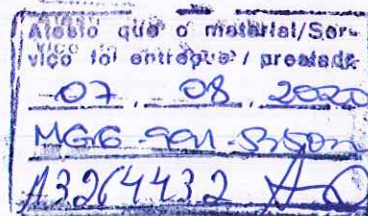 Atesto que o material/Ser-
viço foi entregue / prestado
07 . 08 . 2020
A3264432